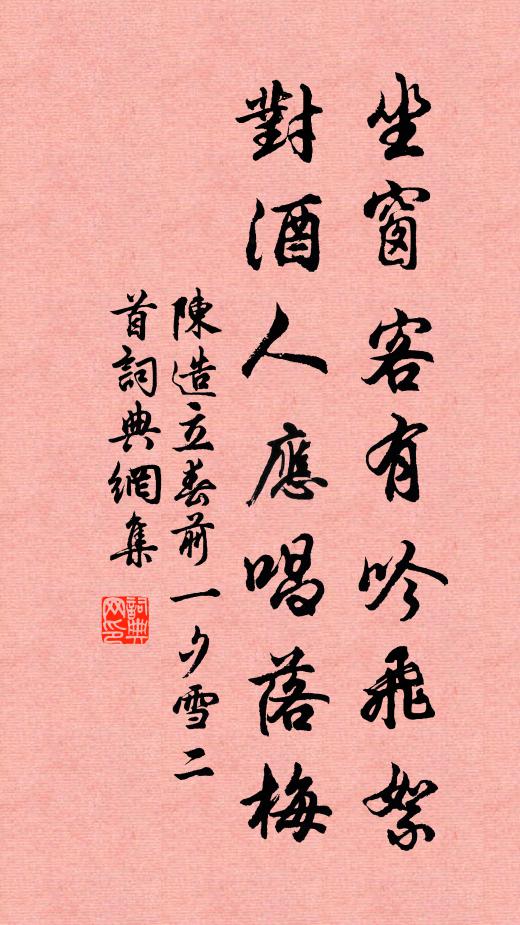 坐窗客有吟飛絮
對酒人應唱落梅
陳造立春前一夕雪二
首詞典網集
詞典网印